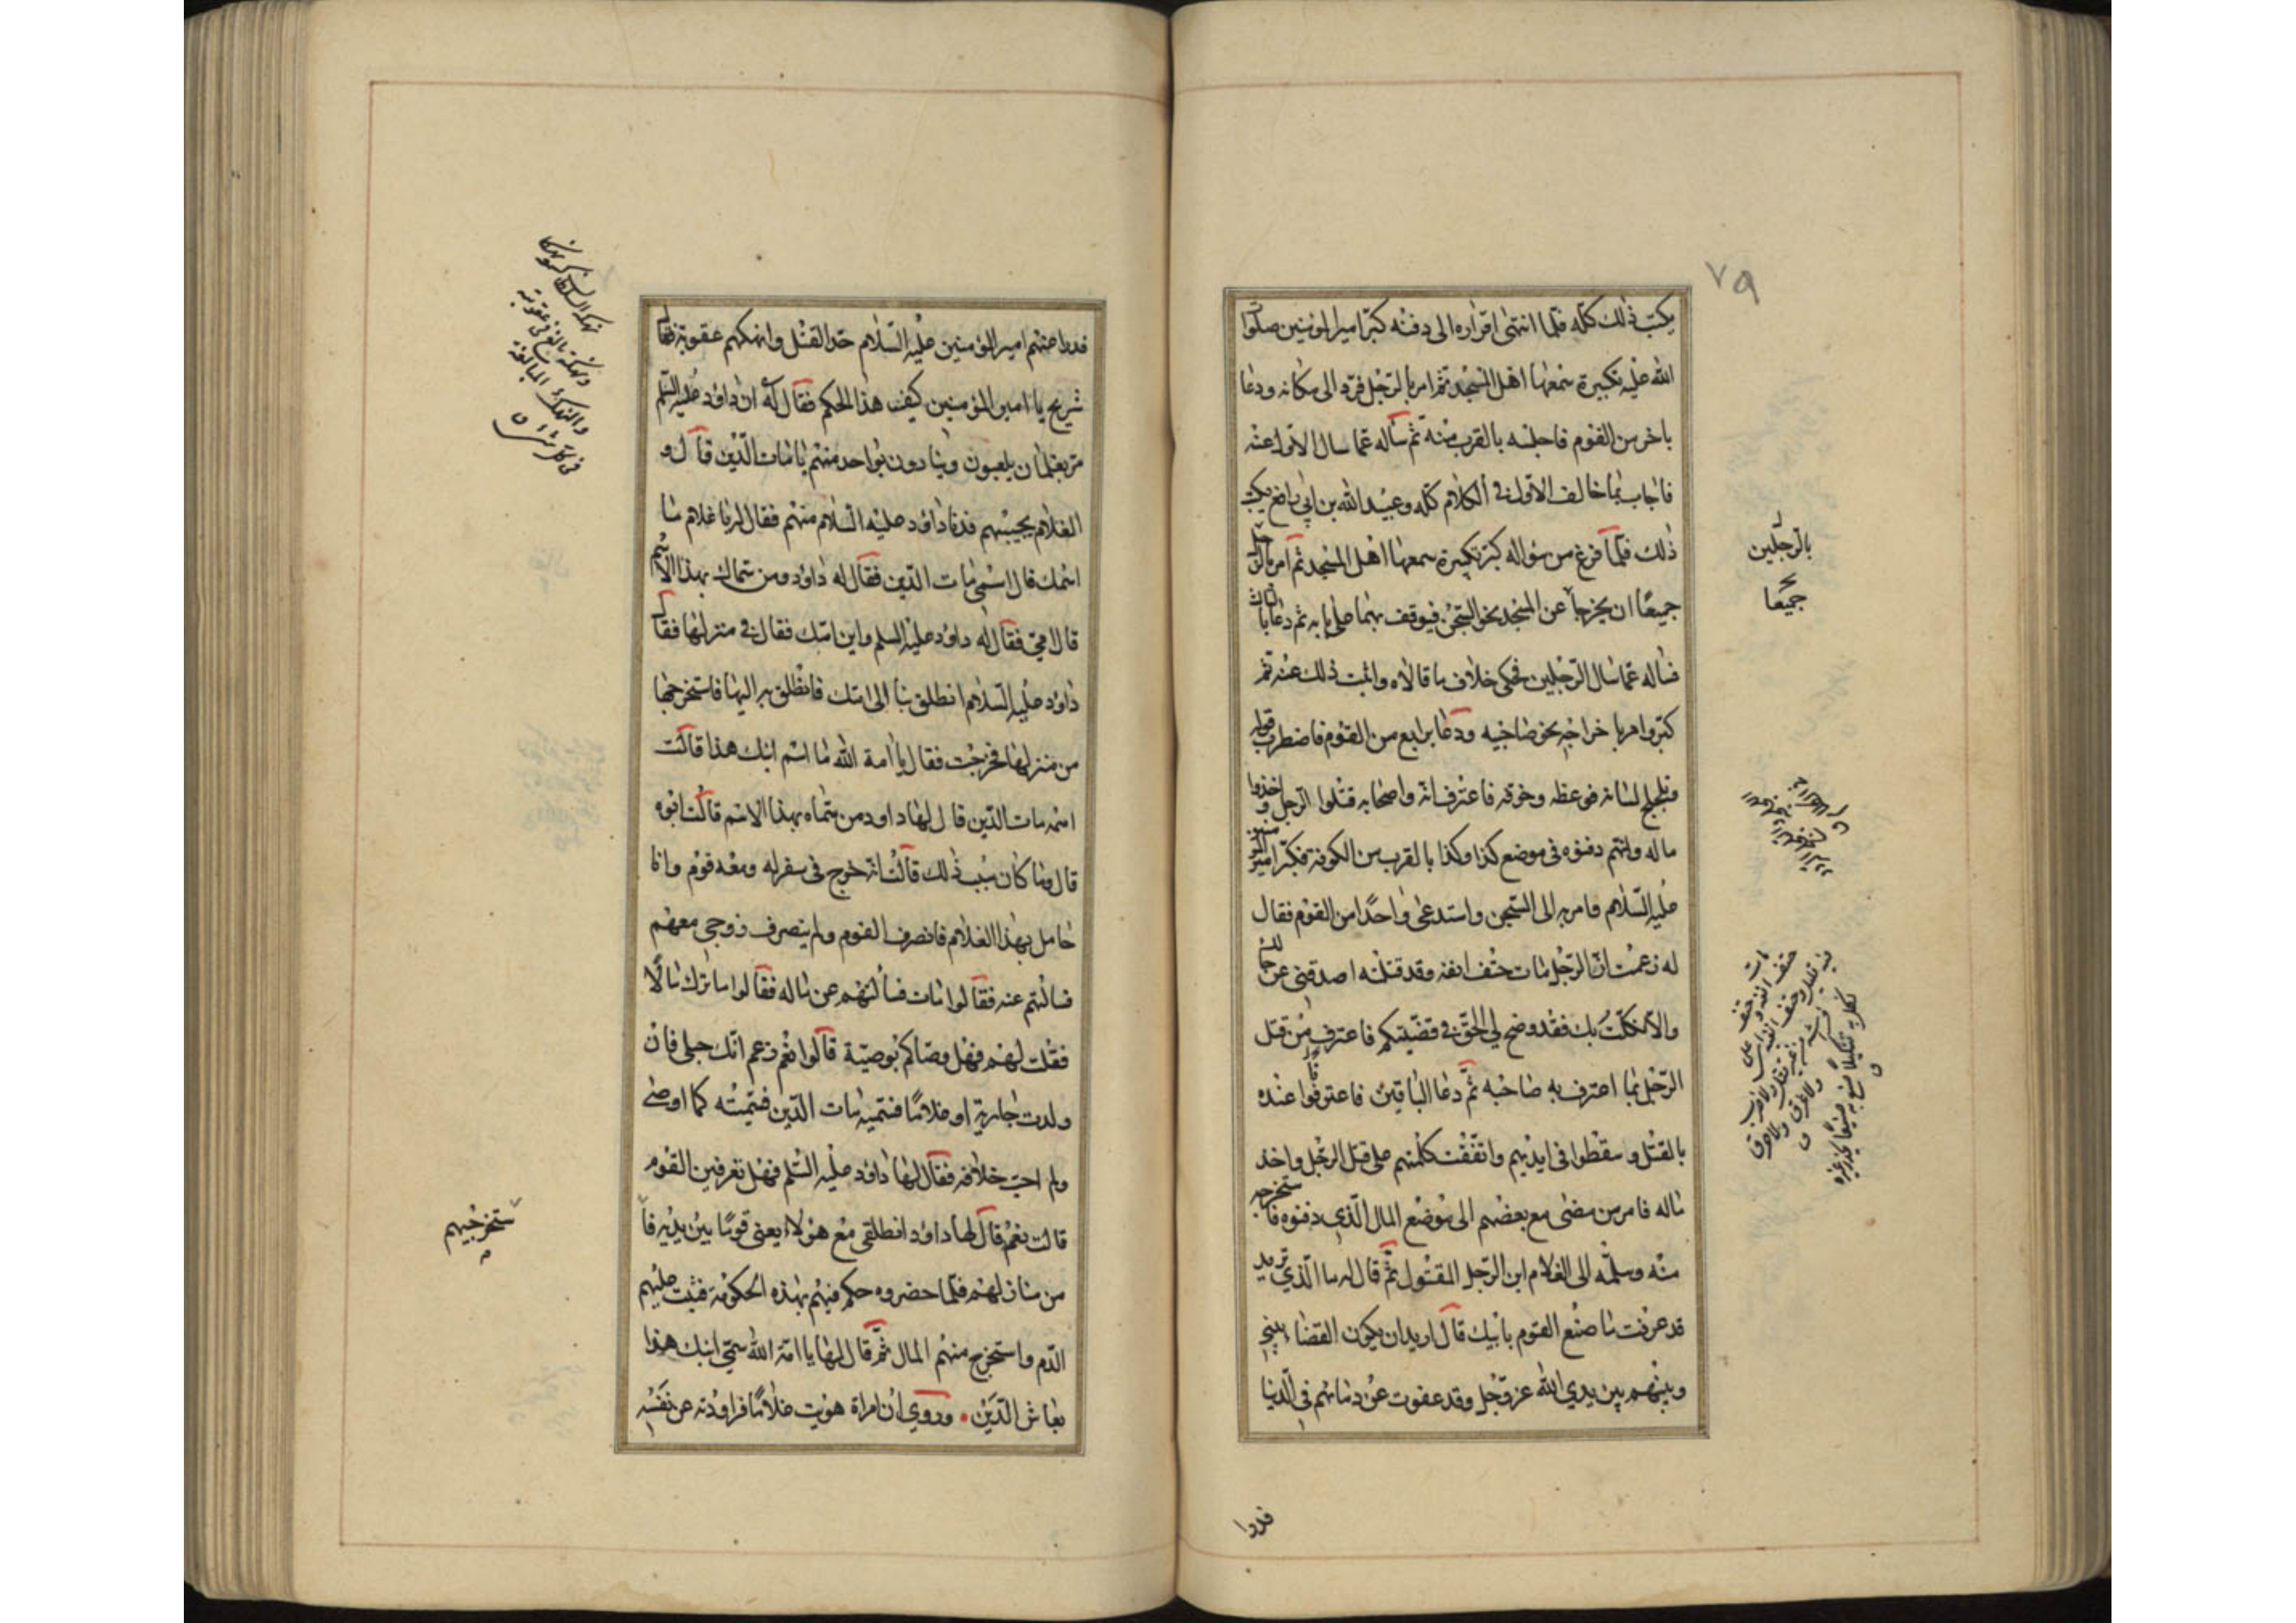 ٧٩
يكتب ذلك كله فلما انتهى اقراره الى دفنه كبّر امير المؤمنين صلوات
الله عليه تكبيرة سمعها اهل المسجد ثم امر بالرّجل فردّ الى مكانه ودعا
باخر من القوم فاجلسه بالقرب منه ثم سأله عما سال الاوّل عنه
فاجاب بما خالف الاوّل في الكلام كله وعبيد الله بن ابي رافع يكتب
ذلك فلمّا فرغ من سؤاله كبّر تكبيرة سمعها اهل المسجد ثم امر بالرّجلين
جميعًا ان يخرجا عن المسجد نحو السّجن فيوقف بهما على بابه ثم دعا بالثالث
فساله عما سال الرّجلين فحكى خلاف ما قالاه واثبت ذلك عنه ثم
كبّر وامر باخراجه نحو صاحبيه ودعا برابع من القوم فاضطرب قوله
وتلجلج لسانه فوعظه وخوّفه فاعترف انّه واصحابه قتلوا الرّجل واخذوا
ماله وانّهم دفنوه في موضع كذا وكذا بالقرب من الكوفة فكبّر امير المؤمنين
عليه السّلام وامر به الى السّجن واستدعى واحدًا من القوم فقال
له زعمت انّ الرّجل مات حتف انفه وقد قتلته اصدقني عن حالك
والّا نكّلت بك فقد وضح لي الحقّ في قضيّتكم فاعترف من قتل
الرّجل بما اعترف به صاحبه ثمّ دعا الباقين فاعترفوا عنده
بالقتل وسقطوا في ايديهم واتّفقت كلمتهم على قتل الرّجل واخذ
ماله فامر من مضى مع بعضهم الى موضع المال الّذي دفنوه فاستخرجه
منه وسلّمه الى الغلام ابن الرّجل المقتول ثمّ قال له ما الّذي تريد
قد عرفت ما صنع القوم بابيك قال اريد ان يكون القضاء بيني
وبينهم بين يدي الله عزّ وجلّ وقد عفوت عن دمائهم في الدّنيا
بالرّجلين
جميعا
فدرا
فدرا عنهم امير المؤمنين عليه السّلام حدّ القتل وانهكهم عقوبة فقال
شريح يا امير المؤمنين كيف هذا الحكم فقال له ان داود عليه السّلم
مرّ بغلمان يلعبون وينادون بواحد منهم يا مات الدّين قال و
الغلام يجيبهم فدنا داود عليه السّلام منهم فقال له يا غلام ما
اسمك قال اسمي مات الدّين فقال له داود ومن سمّاك بهذا الاسم
قال امّي فقال له داود عليه السلم واين امّك فقال في منزلها فقال
داود عليه السّلام انطلق بنا الى امّك فانطلق به اليها فاستخرجها
من منزلها فخرجت فقال يا امة الله ما اسم ابنك هذا قالت
اسمه مات الدّين قال لها داود من سمّاه بهذا الاسم قالت ابوه
قال وما كان سبب ذلك قالت انّه خرج في سفر له ومعه قوم وانا
حامل بهذا الغلام فانصرف القوم ولم ينصرف زوجي معهم
فسالتهم عنه فقالوا مات فسألتهم عن ماله فقالوا ما ترك مالًا
فقلت لهم فهل وصّاكم بوصيّة قالوا نعم زعم انّك حبلى فان
ولدت جارية او غلامًا فسمّيه مات الدّين فسمّيته كما اوصى
ولم احبّ خلافه فقال لها داود عليه السّلم فهل تعرفين القوم
قالت نعم قال لها داود انطلقي مع هؤلاء يعني قومًا بين يديه فا
من منازلهم فلمّا حضروه حكم فيهم بهذه الحكومة فثبت عليهم
الدّم واستخرج منهم المال ثمّ قال لها يا امة الله سمّي ابنك هذا
بعاش الدّين • وروي ان امراة هويت غلامًا فراودته عن نفسه
ستخرجيهم